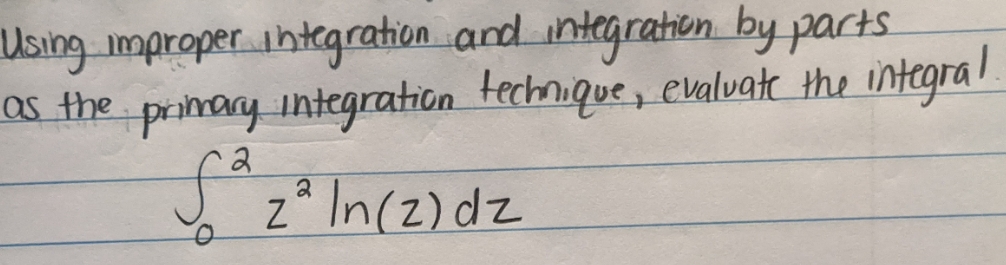 Using improper integration and integration by parts
as the primary integration technique, evaluate the integral
∫₀² z² ln(z) dz